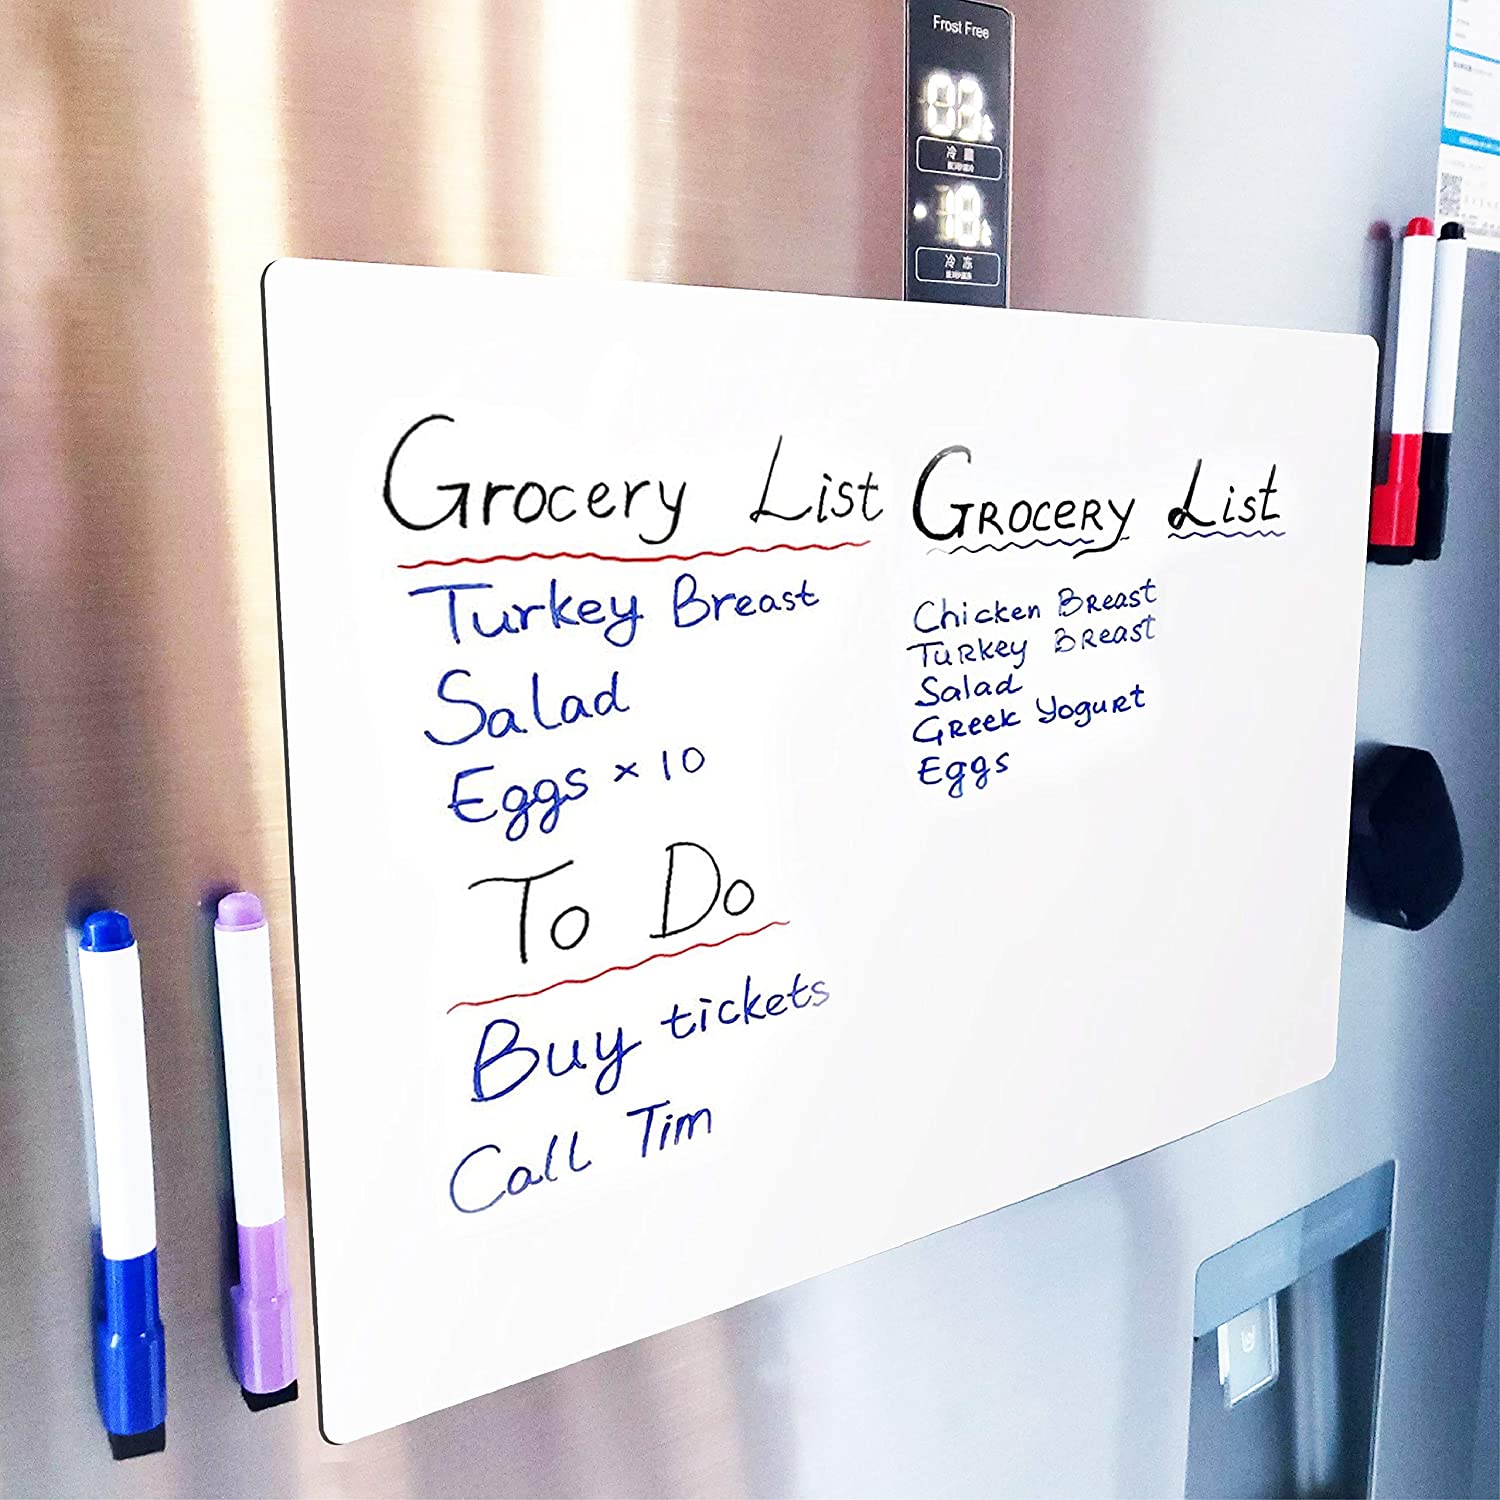 Frost Free
03
冷藏
-18
冷冻
Grocery List
Turkey Breast
Salad
Eggs × 10
To Do
Buy tickets
Call Tim
GROCERY List
Chicken BReast
TuRkey BReast
Salad
GReek YoguRt
Eggs